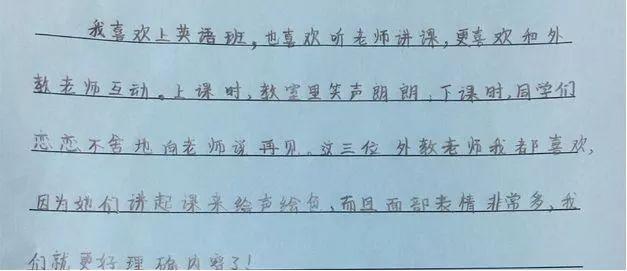 我喜欢上英语班，也喜欢听老师讲课，更喜欢和外
教老师互动。上课时，教室里笑声朗朗，下课时，同学们
恋恋不舍地向老师说再见。这三位外教老师我都喜欢，
因为她们讲起课来绘声绘色，而且面部表情非常多，我
们就更好理确内容了！